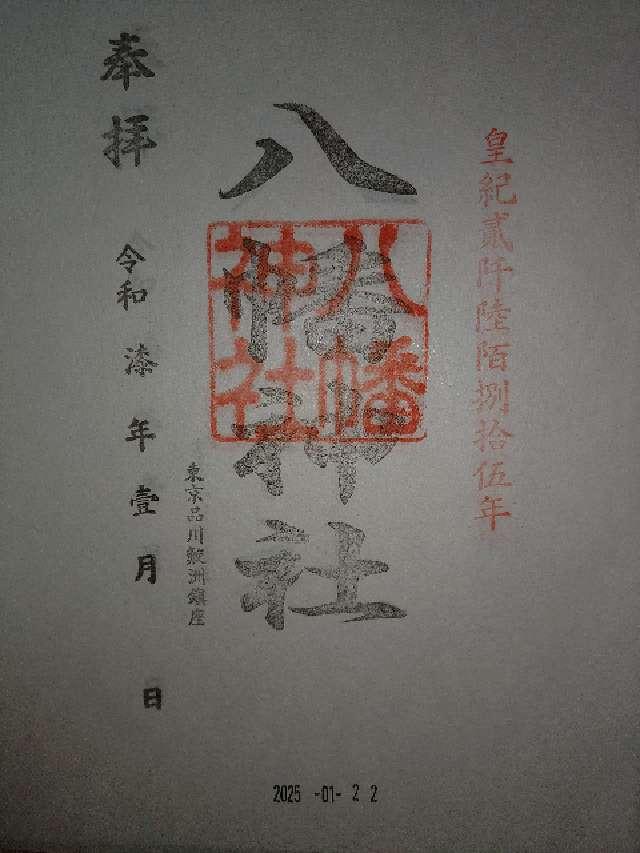 皇紀貳阡陸陌捌拾伍年
八幡神社
八幡
神社
東京品川鮫洲鎮座
奉拝
令和漆年壹月 日
2025 -01- 2 2